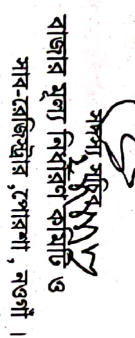 সদস্য সচিব
বাজার মূল্য নির্ধারণ কমিটি ও
সাব-রেজিস্ট্রার, পোরশা, নওগাঁ ।